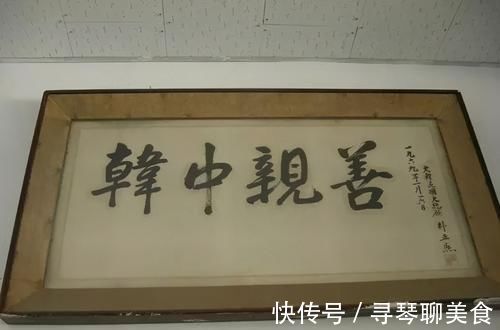 韓中親善
一九六九年
大韓民國大統領 朴正熙
快传号/寻琴聊美食